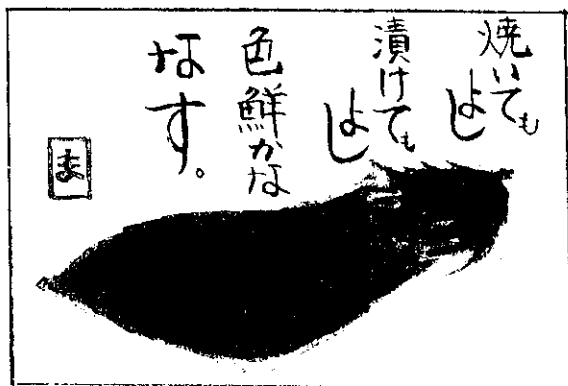 焼いても
よし
漬けても
よし
色鮮かな
なす。
ま